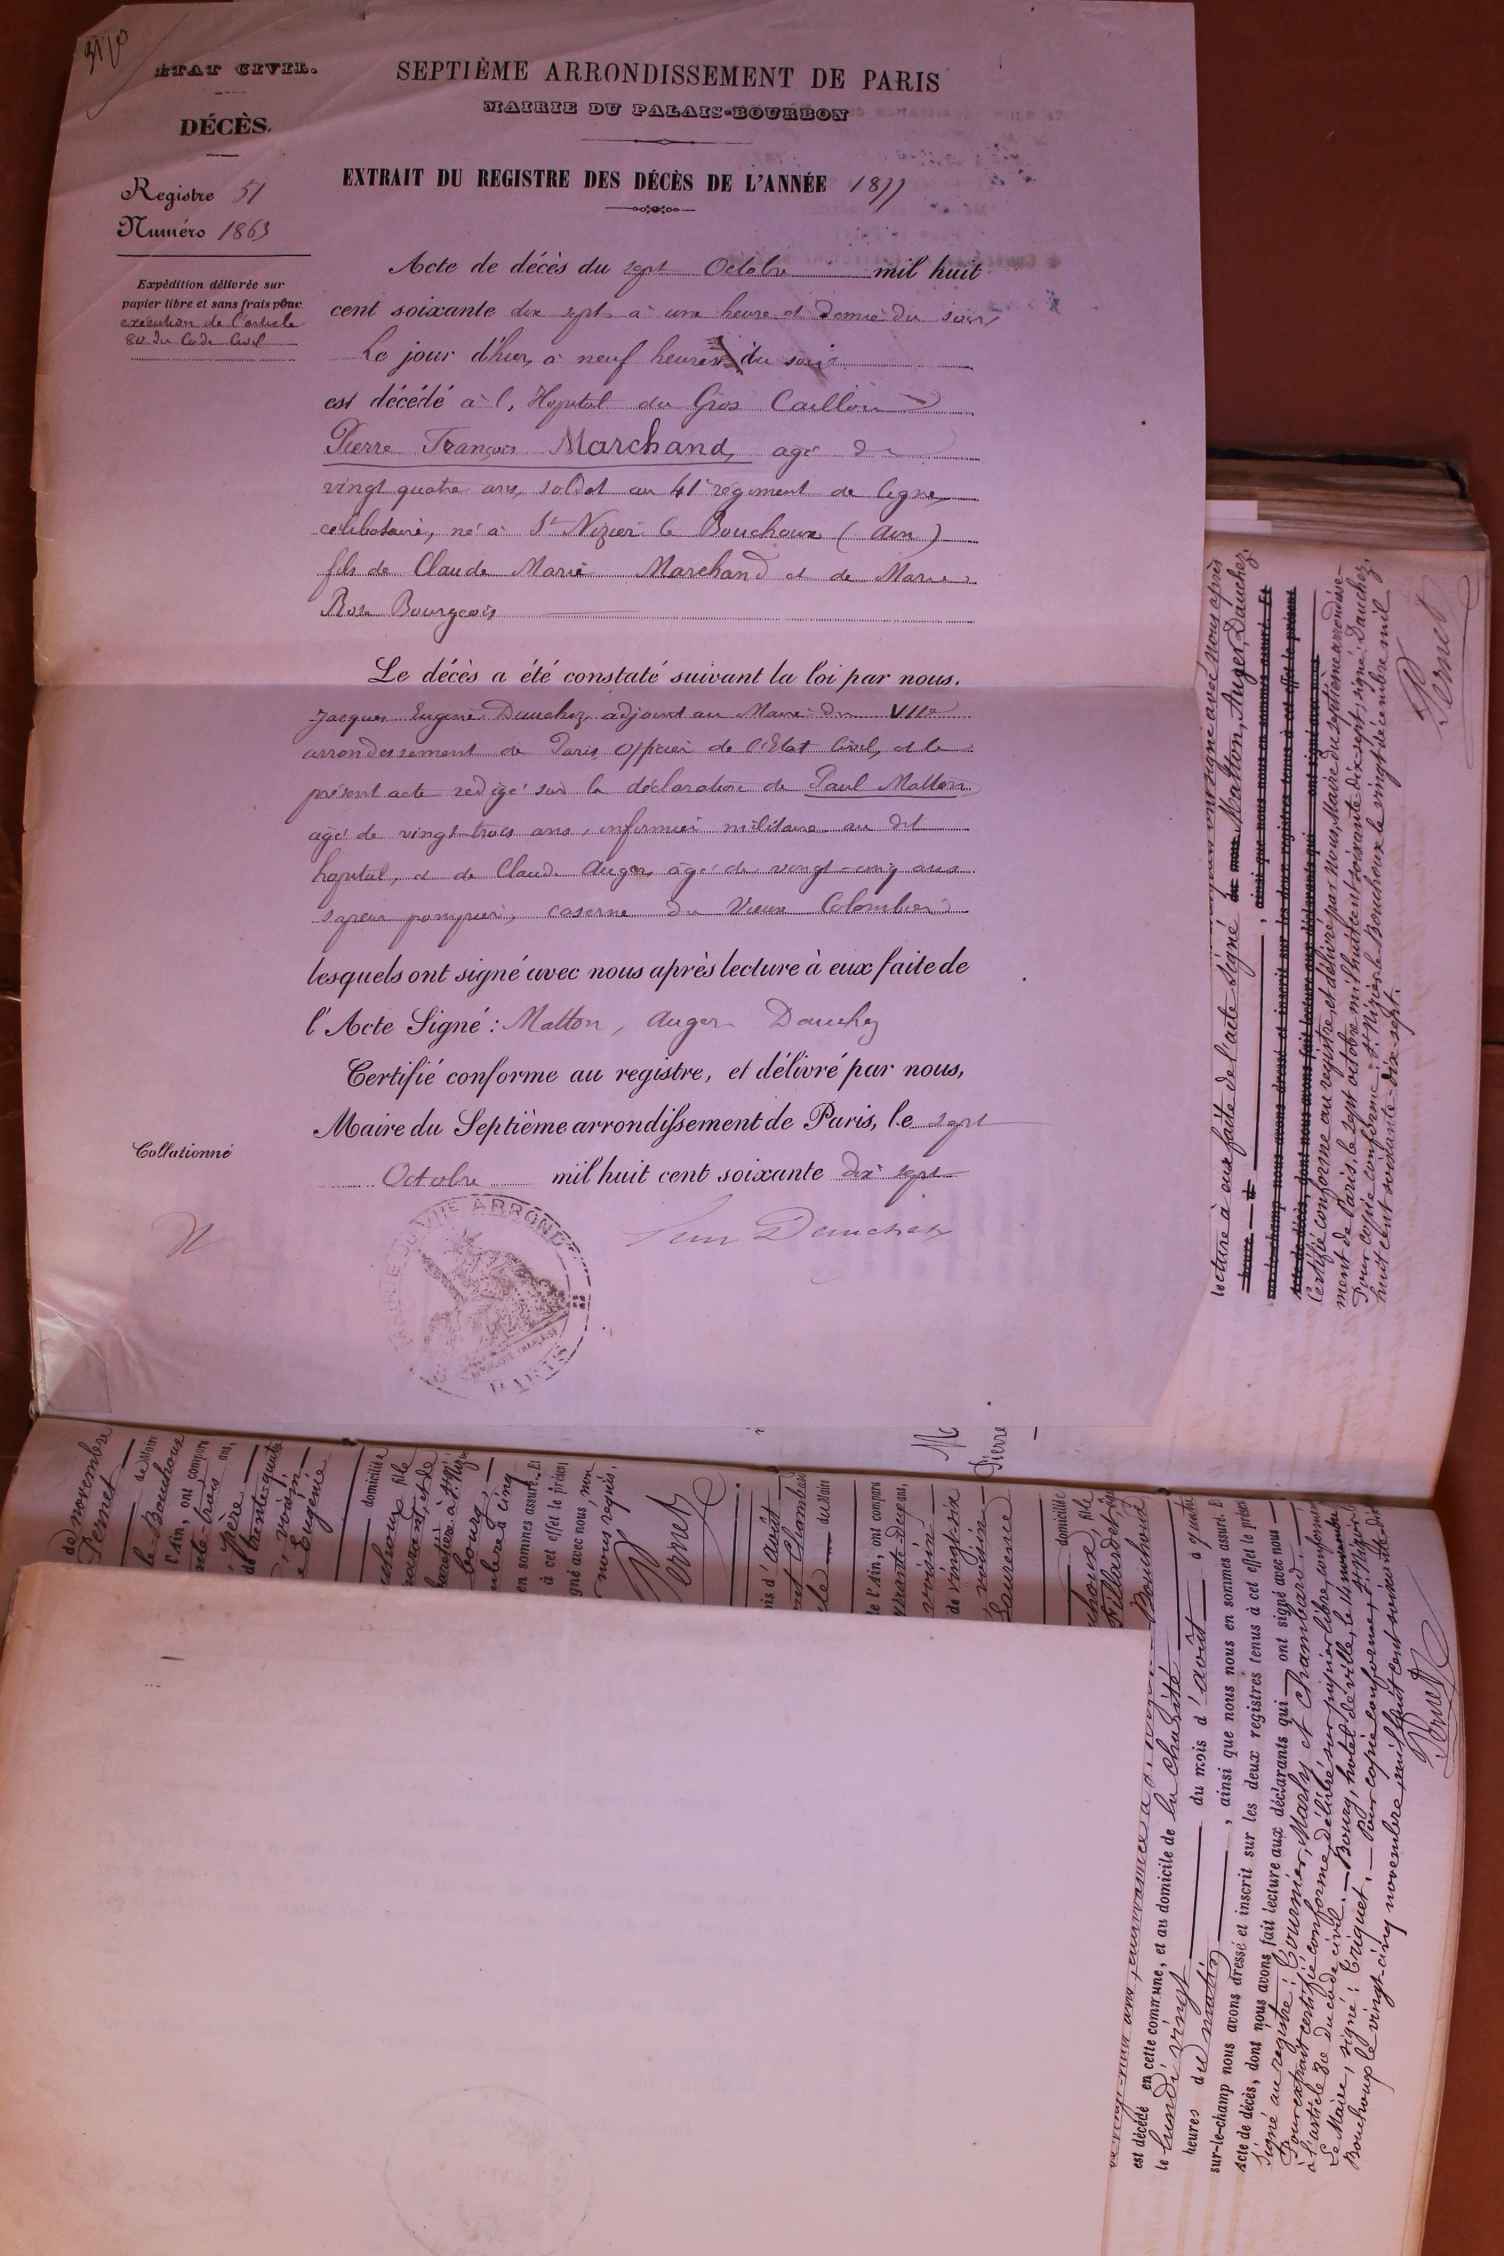 ÉTAT CIVIL.
DÉCÈS.
Registre 51
Numéro 1863
Expédition délivrée sur
papier libre et sans frais pour
exécution de l'article
80 du Code Civil
SEPTIÈME ARRONDISSEMENT DE PARIS
MAIRIE DU PALAIS-BOURBON
EXTRAIT DU REGISTRE DES DÉCÈS DE L'ANNÉE 1877
Acte de décès du sept Octobre mil huit
cent soixante dix sept à une heure et demie du soir
Le jour d'hier, à neuf heures du soir
est décédé à l'Hopital du Gros Caillou
Pierre François Marchand, agé de
vingt quatre ans, soldat au 41e régiment de ligne,
célibataire, né à St Nizier le Bouchoux (Ain)
fils de Claude Marie Marchand et de Marie
Rose Bourgeois
Le décès a été constaté suivant la loi par nous.
Jacques Eugène Dauchez adjoint au Maire du VIIe
arrondissement de Paris, Officier de l'Etat Civil, et le
présent acte redigé sur la déclaration de Paul Matton
agé de vingt-trois ans, infirmier militaire au dit
hopital, et de Claude Auger, âgé de vingt-cinq ans
sapeur pompier, caserne du Vieux Colombier
lesquels ont signé avec nous après lecture à eux faite de
l'Acte Signé : Matton, Auger Dauchez
Certifié conforme au registre, et délivré par nous,
Maire du Septième arrondissement de Paris, le sept
Octobre mil huit cent soixante dix sept
Collationné
Dauchez
MAIRIE DU VIIE ARRONDT
PARIS
lecture à eux faite de l'acte Signé Matton, Auger, Dauchez
sur-le-champ nous avons dressé et inscrit sur les deux registres tenus à cet effet le présent
Acte de décès, dont nous avons fait lecture aux déclarants qui ont signé avec nous
Certifié conforme au registre, et délivré par nous, Maire du septième arrondisse-
ment de Paris, le sept octobre mil huit cent soixante dix sept, signé : Dauchez.
Pour copie conforme : St Nizier le Bouchoux le vingt décembre mil
huit cent soixante-dix-sept.
Pernet
de novembre
Pernet
de Maire
le Bouchoux
l'Ain, ont comparu
ans,
de trente-quatre
voisin
Eugénie
domicilié
fille
en sommes assuré. Et
à cet effet le présent
gné avec nous, non
nous requis.
Pernet
ois d'août
de Maire
de l'Ain, ont comparu
ans,
voisin
de vingt-six
voisin
Laurence
Pierre
domicilié
fille
est décédé en cette commune, et au domicile de la charité
le lundi vingt du mois d'août à quatre
heures du matin, ainsi que nous nous en sommes assuré. Et
sur-le-champ nous avons dressé et inscrit sur les deux registres tenus à cet effet le présent
Acte de décès, dont nous avons fait lecture aux déclarants qui ont signé avec nous
Signé au registre : Tournier, Marly et Chambard.
Pour extrait certifié conforme délivré sur papier libre conformément
à l'article 80 du code civil. — Bourg, hotel de ville, le
Le Maire, signé : Triquet. — Pour copie conforme, St Nizier le
Bouchoux le vingt-cinq novembre mil huit cent soixante-dix
Pernet